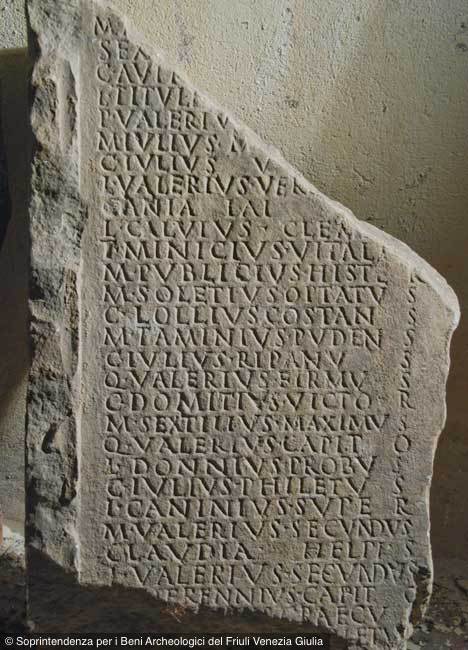 M
SEX
C AVIL
L TITVLE
P VALERIV
M IVLIVS M
C IVLIVS V
L VALERIVS VER
SANIA LAI
L CALVIVS CLEM
T MINICIVS VITALI
M PVBLICIVS HIST R
M SOLETIVS OPTATV S
C LOLLIVS COSTAN S
M TAMINIVS PVDEN S
C IVLIVS RIPANV S
Q VALERIVS FIRMV S
C DOMITIVS VICTO R
M SEXTILIVS MAXIMVS
Q VALERIVS CAPIT O
L DONNIVS PROBV S
C IVLIVS PHILETV S
L CANINIVS SVPE R
M VALERIVS SECVNDVS
CLAVDIA HELPIS
VALERIVS SECVNDVS
ERENNIVS CAPIT
PAECV
© Soprintendenza per i Beni Archeologici del Friuli Venezia Giulia